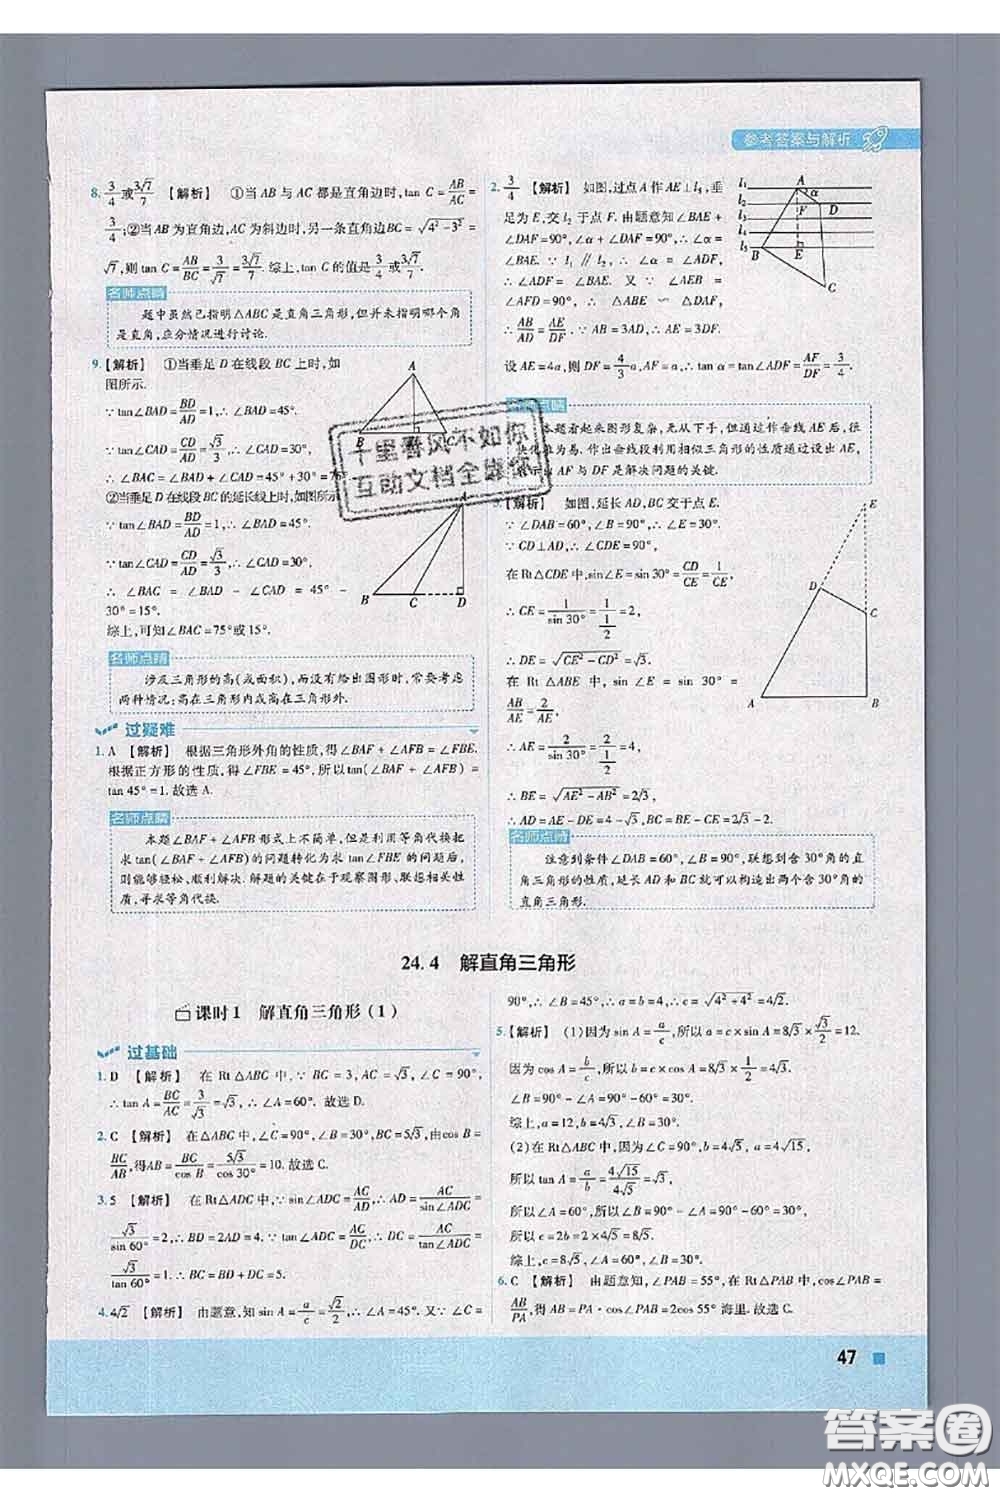 参考答案与解析
8. 3/4或3√7/7 【解析】 ①当 AB 与 AC 都是直角边时,tan C = AB/AC =
3/4;②当 AB 为直角边,AC 为斜边时,另一条直角边BC = √(4²-3²) =
√7,则 tan C = AB/BC = 3/√7 = 3√7/7. 综上,tan C 的值是 3/4 或 3√7/7.
名师点睛
题中虽然已指明△ABC 是直角三角形,但并未指明哪个角
是直角,应分情况进行讨论.
9.【解析】 ①当垂足 D 在线段 BC 上时,如
图所示.
∵tan∠BAD = BD/AD = 1,∴∠BAD = 45°.
∵tan∠CAD = CD/AD = √3/3,∴∠CAD = 30°,
∴∠BAC = ∠BAD + ∠CAD = 45° + 30° = 75°.
②当垂足 D 在线段 BC 的延长线上时,如图所示.
∵tan∠BAD = BD/AD = 1,∴∠BAD = 45°.
∵tan∠CAD = CD/AD = √3/3,∴∠CAD = 30°,
∴∠BAC = ∠BAD - ∠CAD = 45° -
30° = 15°.
综上,可知∠BAC = 75°或 15°.
A
B
C
A
B
C
D
名师点睛
涉及三角形的高(或面积),而没有给出图形时,常要考虑
两种情况:高在三角形内或高在三角形外.
过疑难
1. A 【解析】 根据三角形外角的性质,得∠BAF + ∠AFB = ∠FBE.
根据正方形的性质,得∠FBE = 45°,所以tan(∠BAF + ∠AFB) =
tan 45° = 1. 故选 A.
名师点睛
本题∠BAF + ∠AFB 形式上不简单,但是利用等角代换把
求 tan(∠BAF + ∠AFB)的问题转化为求 tan∠FBE 的问题后,
则能够轻松、顺利解决. 解题的关键在于观察图形、联想相关性
质,并寻求等角代换.
2. 3/4 【解析】 如图,过点 A 作 AE⊥l₅,垂
足为 E,交 l₂ 于点 F. 由题意知∠BAE +
∠DAF = 90°,∠α + ∠DAF = 90°,∴∠α =
∠BAE. ∵l₁∥l₂,∴∠α = ∠ADF,
∴∠BAE = ∠ADF. 又∵∠AEB =
∠DFA = 90°,∴△ABE ∽ △DAF,
∴AB/AD = AE/DF. ∵AB = 3AD,∴AE = 3DF.
设 AE = 4a,则 DF = 4/3 a,AF = a,∴tan α = tan∠ADF = AF/DF = 3/4.
l₁
l₂
l₃
l₄
l₅
A
α
F
D
B
E
C
名师点睛
本题看起来图形复杂,无从下手,但通过作垂线 AE 后,往
AF 与 DF 是解决问题的关键.
【解析】 如图,延长 AD,BC 交于点 E.
∵∠DAB = 60°,∠B = 90°,∴∠E = 30°.
∵CD⊥AD,∴∠CDE = 90°,
在 Rt△CDE 中,sin∠E = sin 30° = CD/CE = 1/CE,
∴CE = 1/sin 30° = 1/(1/2) = 2,
∴DE = √(CE² - CD²) = √3.
在 Rt△ABE 中,sin∠E = sin 30° =
AB/AE = 2/AE,
∴AE = 2/sin 30° = 2/(1/2) = 4,
∴BE = √(AE² - AB²) = 2√3,
∴AD = AE - DE = 4 - √3,BC = BE - CE = 2√3 - 2.
E
D
C
A
B
名师点睛
注意到条件∠DAB = 60°,∠B = 90°,联想到含 30°角的直
角三角形的性质,延长 AD 和 BC 就可以构造出两个含 30°角的
直角三角形.
千里春风不如你
互助文档全靠你
24.4 解直角三角形
课时1 解直角三角形(1)
过基础
1. D 【解析】 在 Rt△ABC 中,∵BC = 3,AC = √3,∠C = 90°,
∴tan A = BC/AC = 3/√3 = √3,∴∠A = 60°. 故选 D.
2. C 【解析】 在△ABC 中,∠C = 90°,∠B = 30°,BC = 5√3,由cos B =
BC/AB,得AB = BC/cos B = 5√3/cos 30° = 10. 故选 C.
3. 5 【解析】 在 Rt△ADC 中,∵sin∠ADC = AC/AD,∴AD = AC/sin∠ADC =
√3/sin 60° = 2,∴BD = 2AD = 4. ∵tan∠ADC = AC/DC,∴DC = AC/tan∠ADC =
√3/tan 60° = 1. ∴BC = BD + DC = 5.
4. 4√2 【解析】 由题意,知 sin A = a/c = √2/2,∴∠A = 45°. 又∵∠C =
90°,∴∠B = 45°,∴a = b = 4,∴c = √(4² + 4²) = 4√2.
5.【解析】 (1)因为 sin A = a/c,所以 a = c×sin A = 8√3×√3/2 = 12.
因为 cos A = b/c,所以 b = c×cos A = 8√3×1/2 = 4√3.
∠B = 90° - ∠A = 90° - 60° = 30°.
综上,a = 12,b = 4√3,∠B = 30°.
(2)在 Rt△ABC 中,因为∠C = 90°,b = 4√5,a = 4√15,
所以 tan A = a/b = 4√15/4√5 = √3,
所以∠A = 60°,所以∠B = 90° - ∠A = 90° - 60° = 30°,
所以 c = 2b = 2×4√5 = 8√5.
综上,c = 8√5,∠A = 60°,∠B = 30°.
6. C 【解析】 由题意知,∠PAB = 55°,在 Rt△PAB 中,cos∠PAB =
AB/PA,得 AB = PA·cos∠PAB = 2cos 55° 海里. 故选 C.
47
答案圈
MXQE.COM